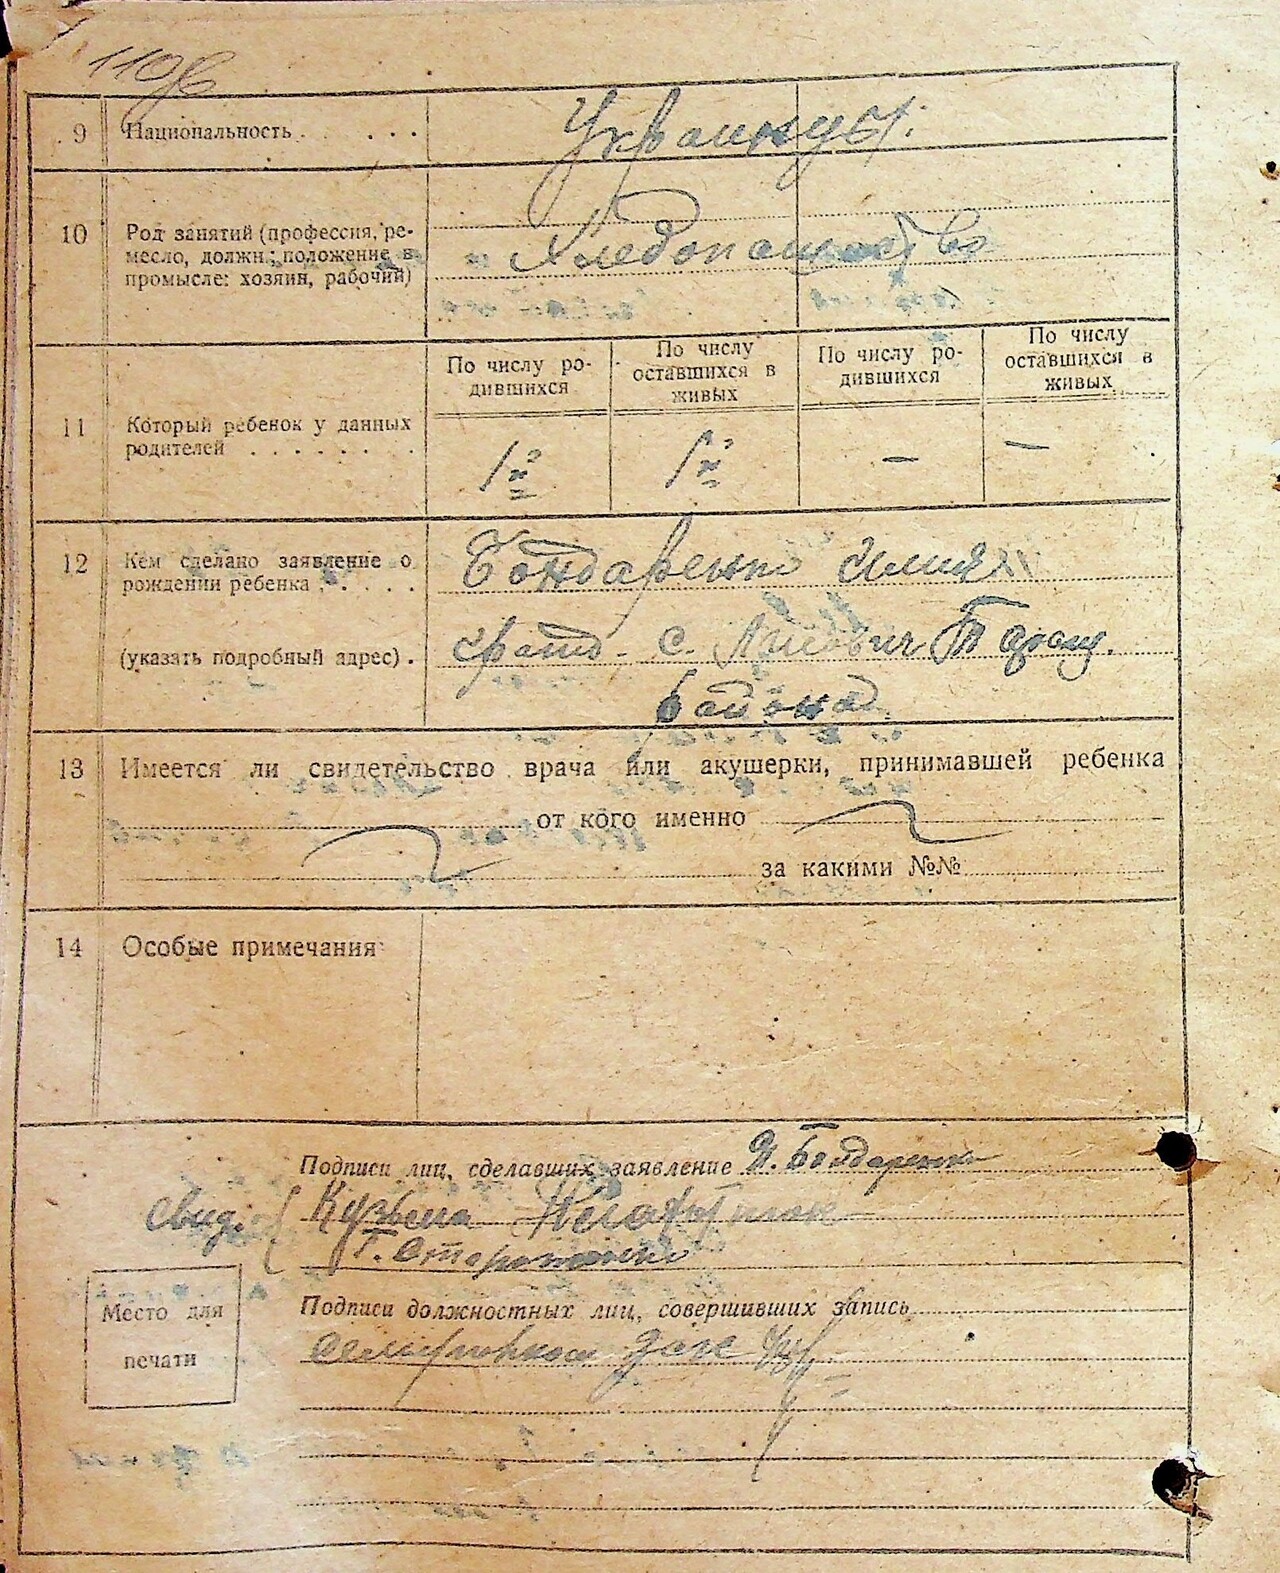 110
9 Национальность . . . . Украинцы.
10 Род занятий (профессия, ре-
месло, должн.; положение в
промысле: хозяин, рабочий)
Хлебопашество
По числу ро-
дившихся
По числу
оставшихся в
живых
По числу ро-
дившихся
По числу
оставшихся в
живых
11 Который ребенок у данных
родителей . . . . . . .
1й 1й — —
12 Кем сделано заявление о
рождении ребенка . . . . .
Бондаренко Илия
(указать подробный адрес) .
с. Таращ.
района
13 Имеется ли свидетельство врача или акушерки, принимавшей ребенка
от кого именно
за какими №№
14 Особые примечания
Подписи лиц, сделавших заявление И. Бондаренко
свид. Кузьма
Г.
Место для
печати
Подписи должностных лиц, совершивших запись